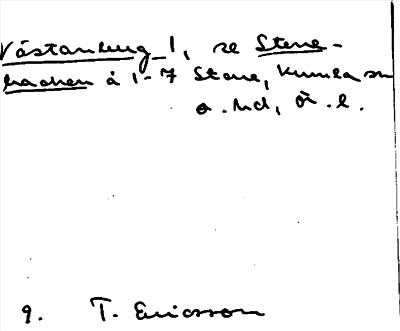 Västanberg 1, se Stene-
backen å 1-7 Stene, Kumla sn
o. hd, Ö.l.
9. T. Ericsson